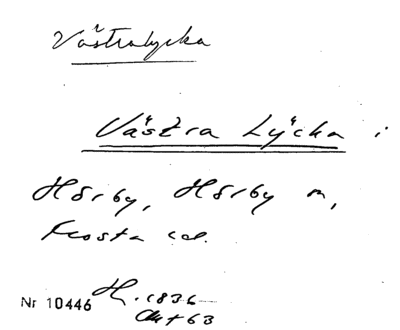 Västralycka
Västra Lycka i
Hörby, Hörby sn,
Frosta hd.
Nr 10446 H. 1836
Akt 63